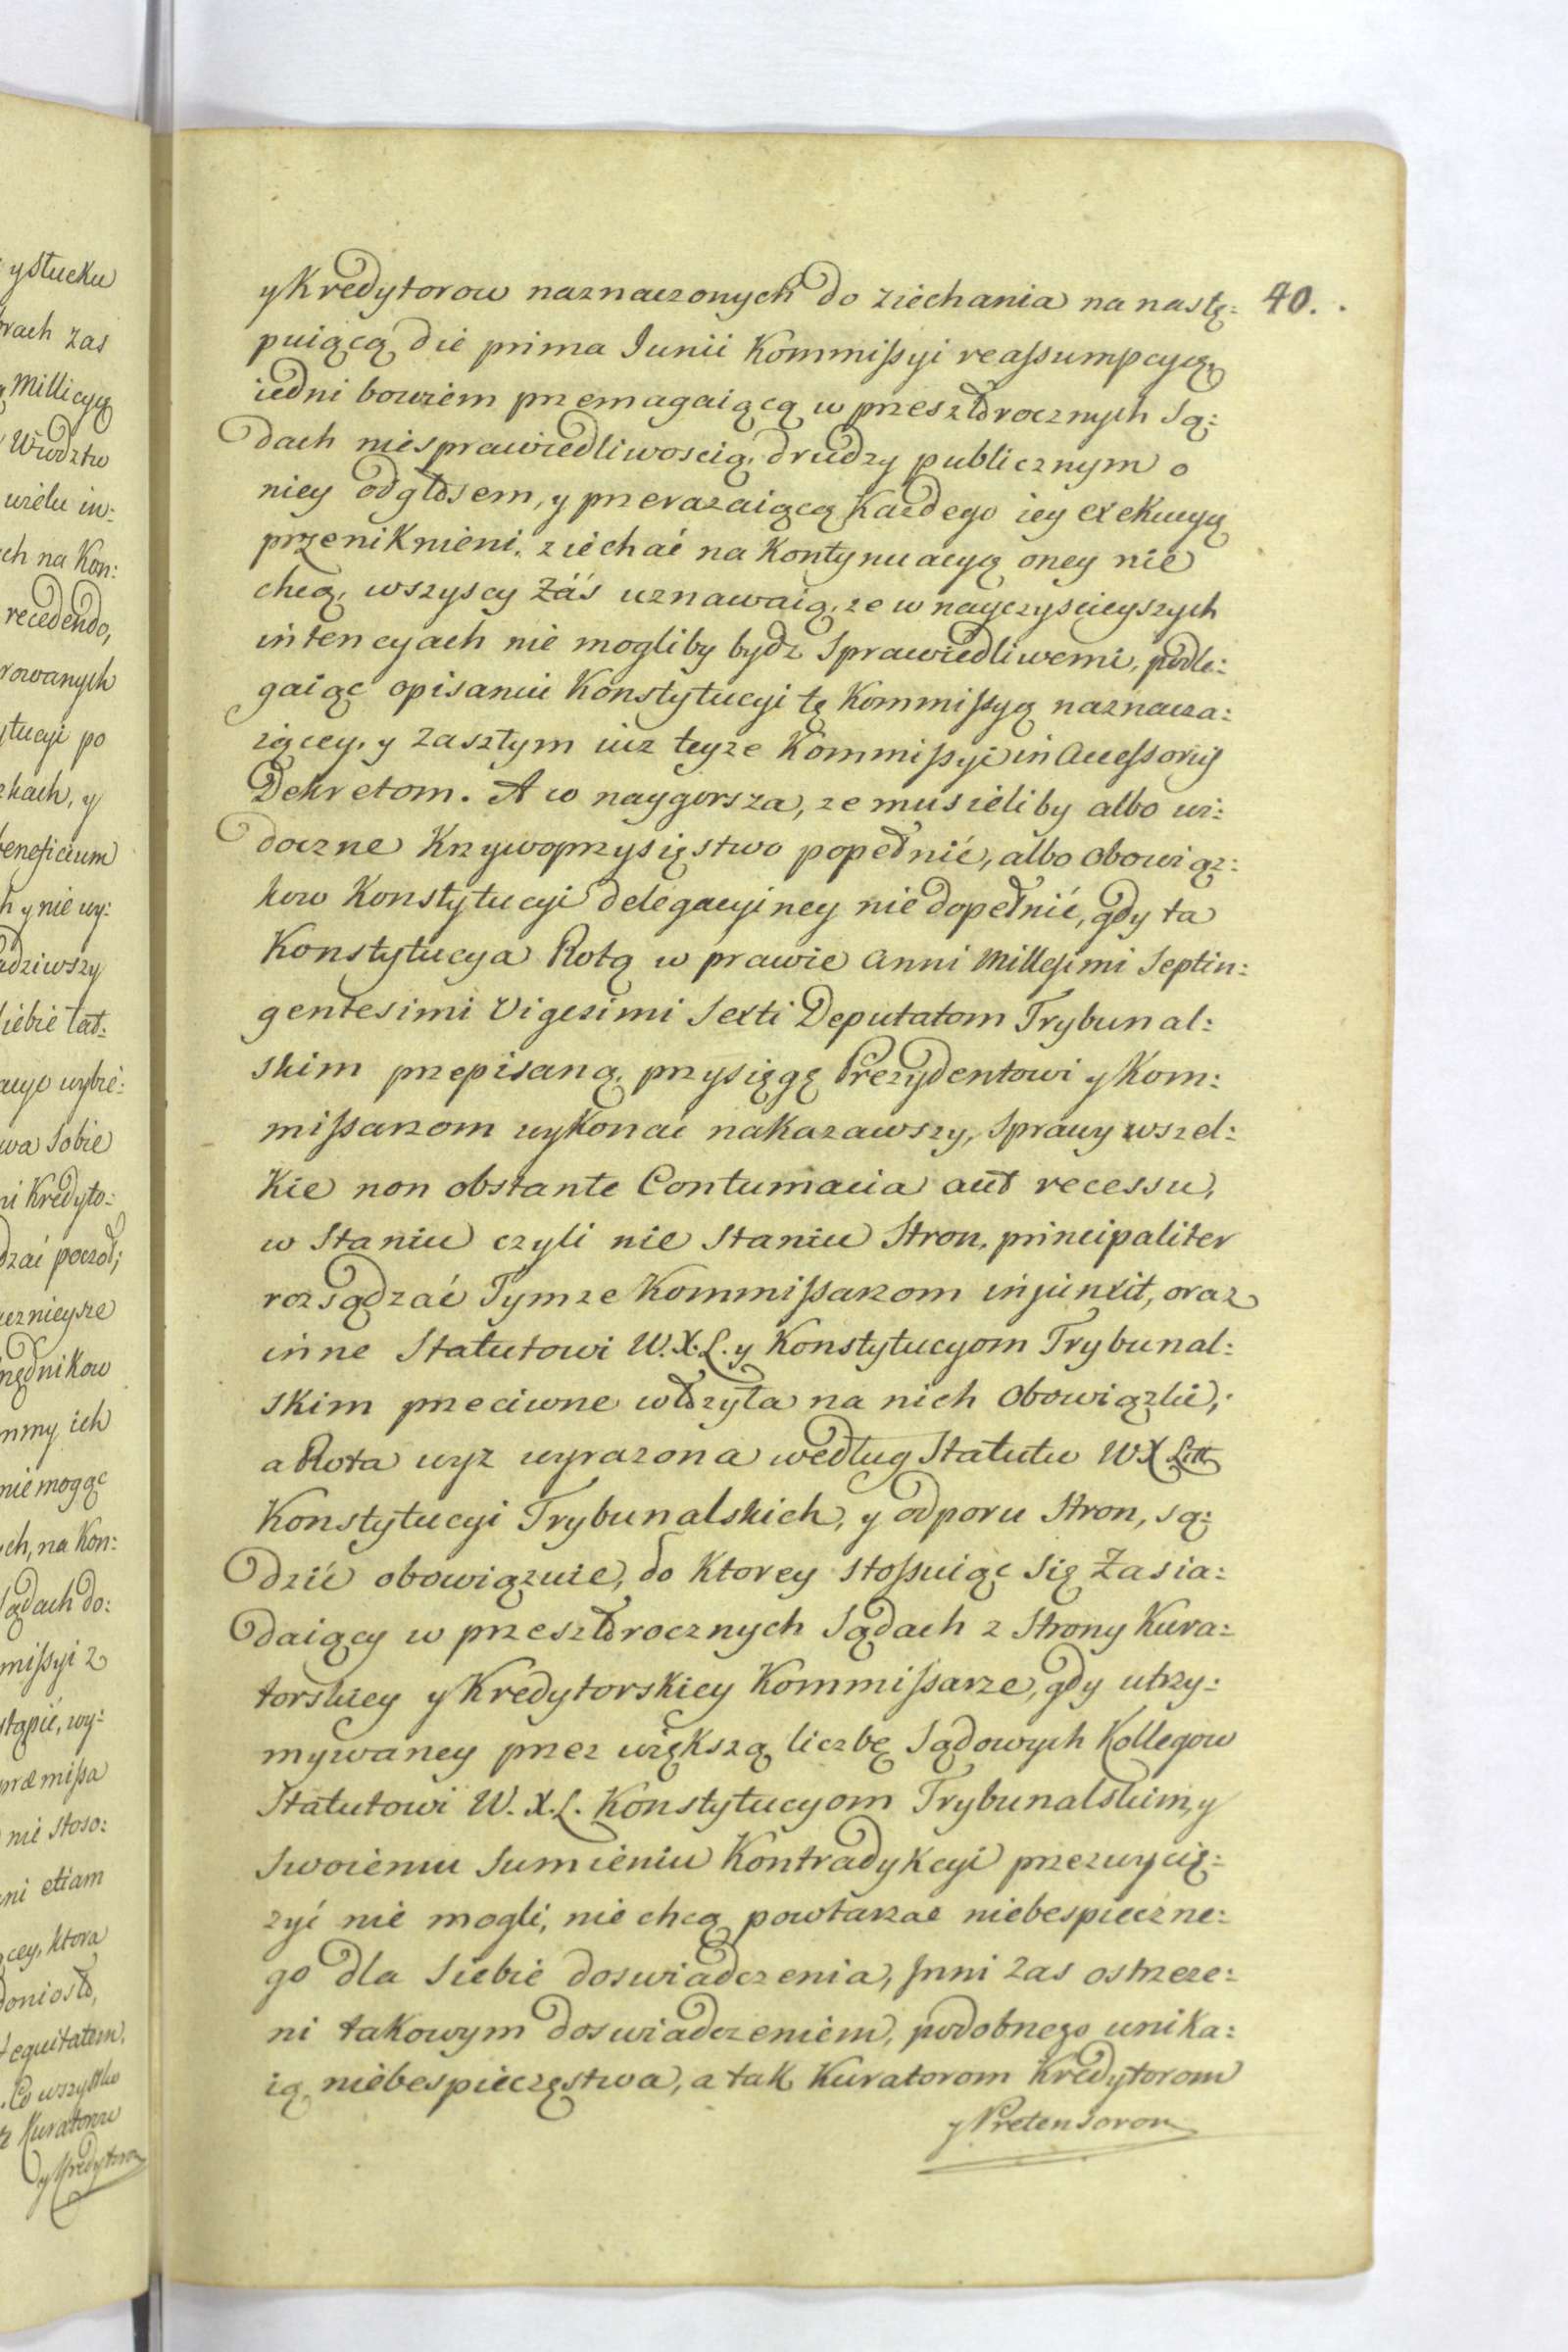 y Stucku
orach zas
Millicyą
Wwdztw
wielu in:
ch na Kon:
recedendo,
rowanych
ytucyi po
kach, y
beneficium
h y nie wy:
adziwszy
siebie tat:
acye wybie:
wa Sobie
ni Kredyto:
dzać począł;
ucznieysze
rzędnikow
mmy ich
nie mogąc
ch, na Kon:
Sądach do:
mißyi z
stąpić, wy:
præmißa
nie stoso:
ni etiam
cey, ktora
doniosło,
equitatem.
Co wszystko
z Kuratorow
y Kredytorow
y Kredytorow naznaczonych do ziechania na nastę: 40.
puiącą die prima Junii Kommißyi reaßumpcyą,
iedni bowiem przemagaiącą w przeszłorocznych Są:
dach niesprawiedliwoscią, drudzy publicznym o
niey odgłosem, y przerazaiącą Kazdego iey exekucyą
przeniknieni, ziechać na Kontynuacyą oney nie
chcą, wszyscy Záś uznawaią, ze w nayczyscieyszych
intencyach nie mogliby bydz Sprawiedliwemi, podle:
gaiąc opisaniu Konstytucyi tę Kommißyą naznacza:
iącey, y Zaszłym iuz teyze Kommißyi in Acceßoriis
Dekretom. A co naygorsza, ze musieliby albo wi:
doczne Krzywoprzysięstwo popełnić, albo obowiąz:
kow Konstytucyi delegacyiney nie dopełnić, gdy ta
Konstytucya Rotą w prawie Anni Millesimi Septin:
gentesimi Vigesimi Sexti Deputatom Trybunal:
skim przepisaną, przysięgę Prezydentowi y Kom:
mißarzom wykonać nakazawszy, Sprawy wszel:
Kie non obstante Contumacia aut recessu,
w Staniu czyli nie Staniu Stron, principaliter
rozsądzać Tymze Kommißarzom injunxit, oraz
inne Statutowi W. X. L. y Konstytucyom Trybunal:
skim przeciwne włozyła na nich Obowiązki;
a Rota wyz wyrazona według Statutu W X Litt
Konstytucyi Trybunalskich, y odporu Stron, są:
dzić obowiązuie, do Ktorey stoßuiąc Się Zasia:
daiący w przeszłorocznych Sądach z Strony Kura:
torskiey y Kredytorskiey Kommißarze, gdy utrzy:
mywaney przez większą liczbę Sądowych Kollegow
Statutowi W. X. L. Konstytucyom Trybunalskim, y
Swoiemu Sumieniu Kontradykcyi przezwycię:
zyć nie mogli, nie chcą powtarzać niebespieczne:
go dla Siebie doswiadczenia, Inni Zas ostrzeze:
ni takowym doswiadczeniem, podobnego unika:
ią niebespieczęstwa, a tak Kuratorom Kredytorom
y Pretensorom